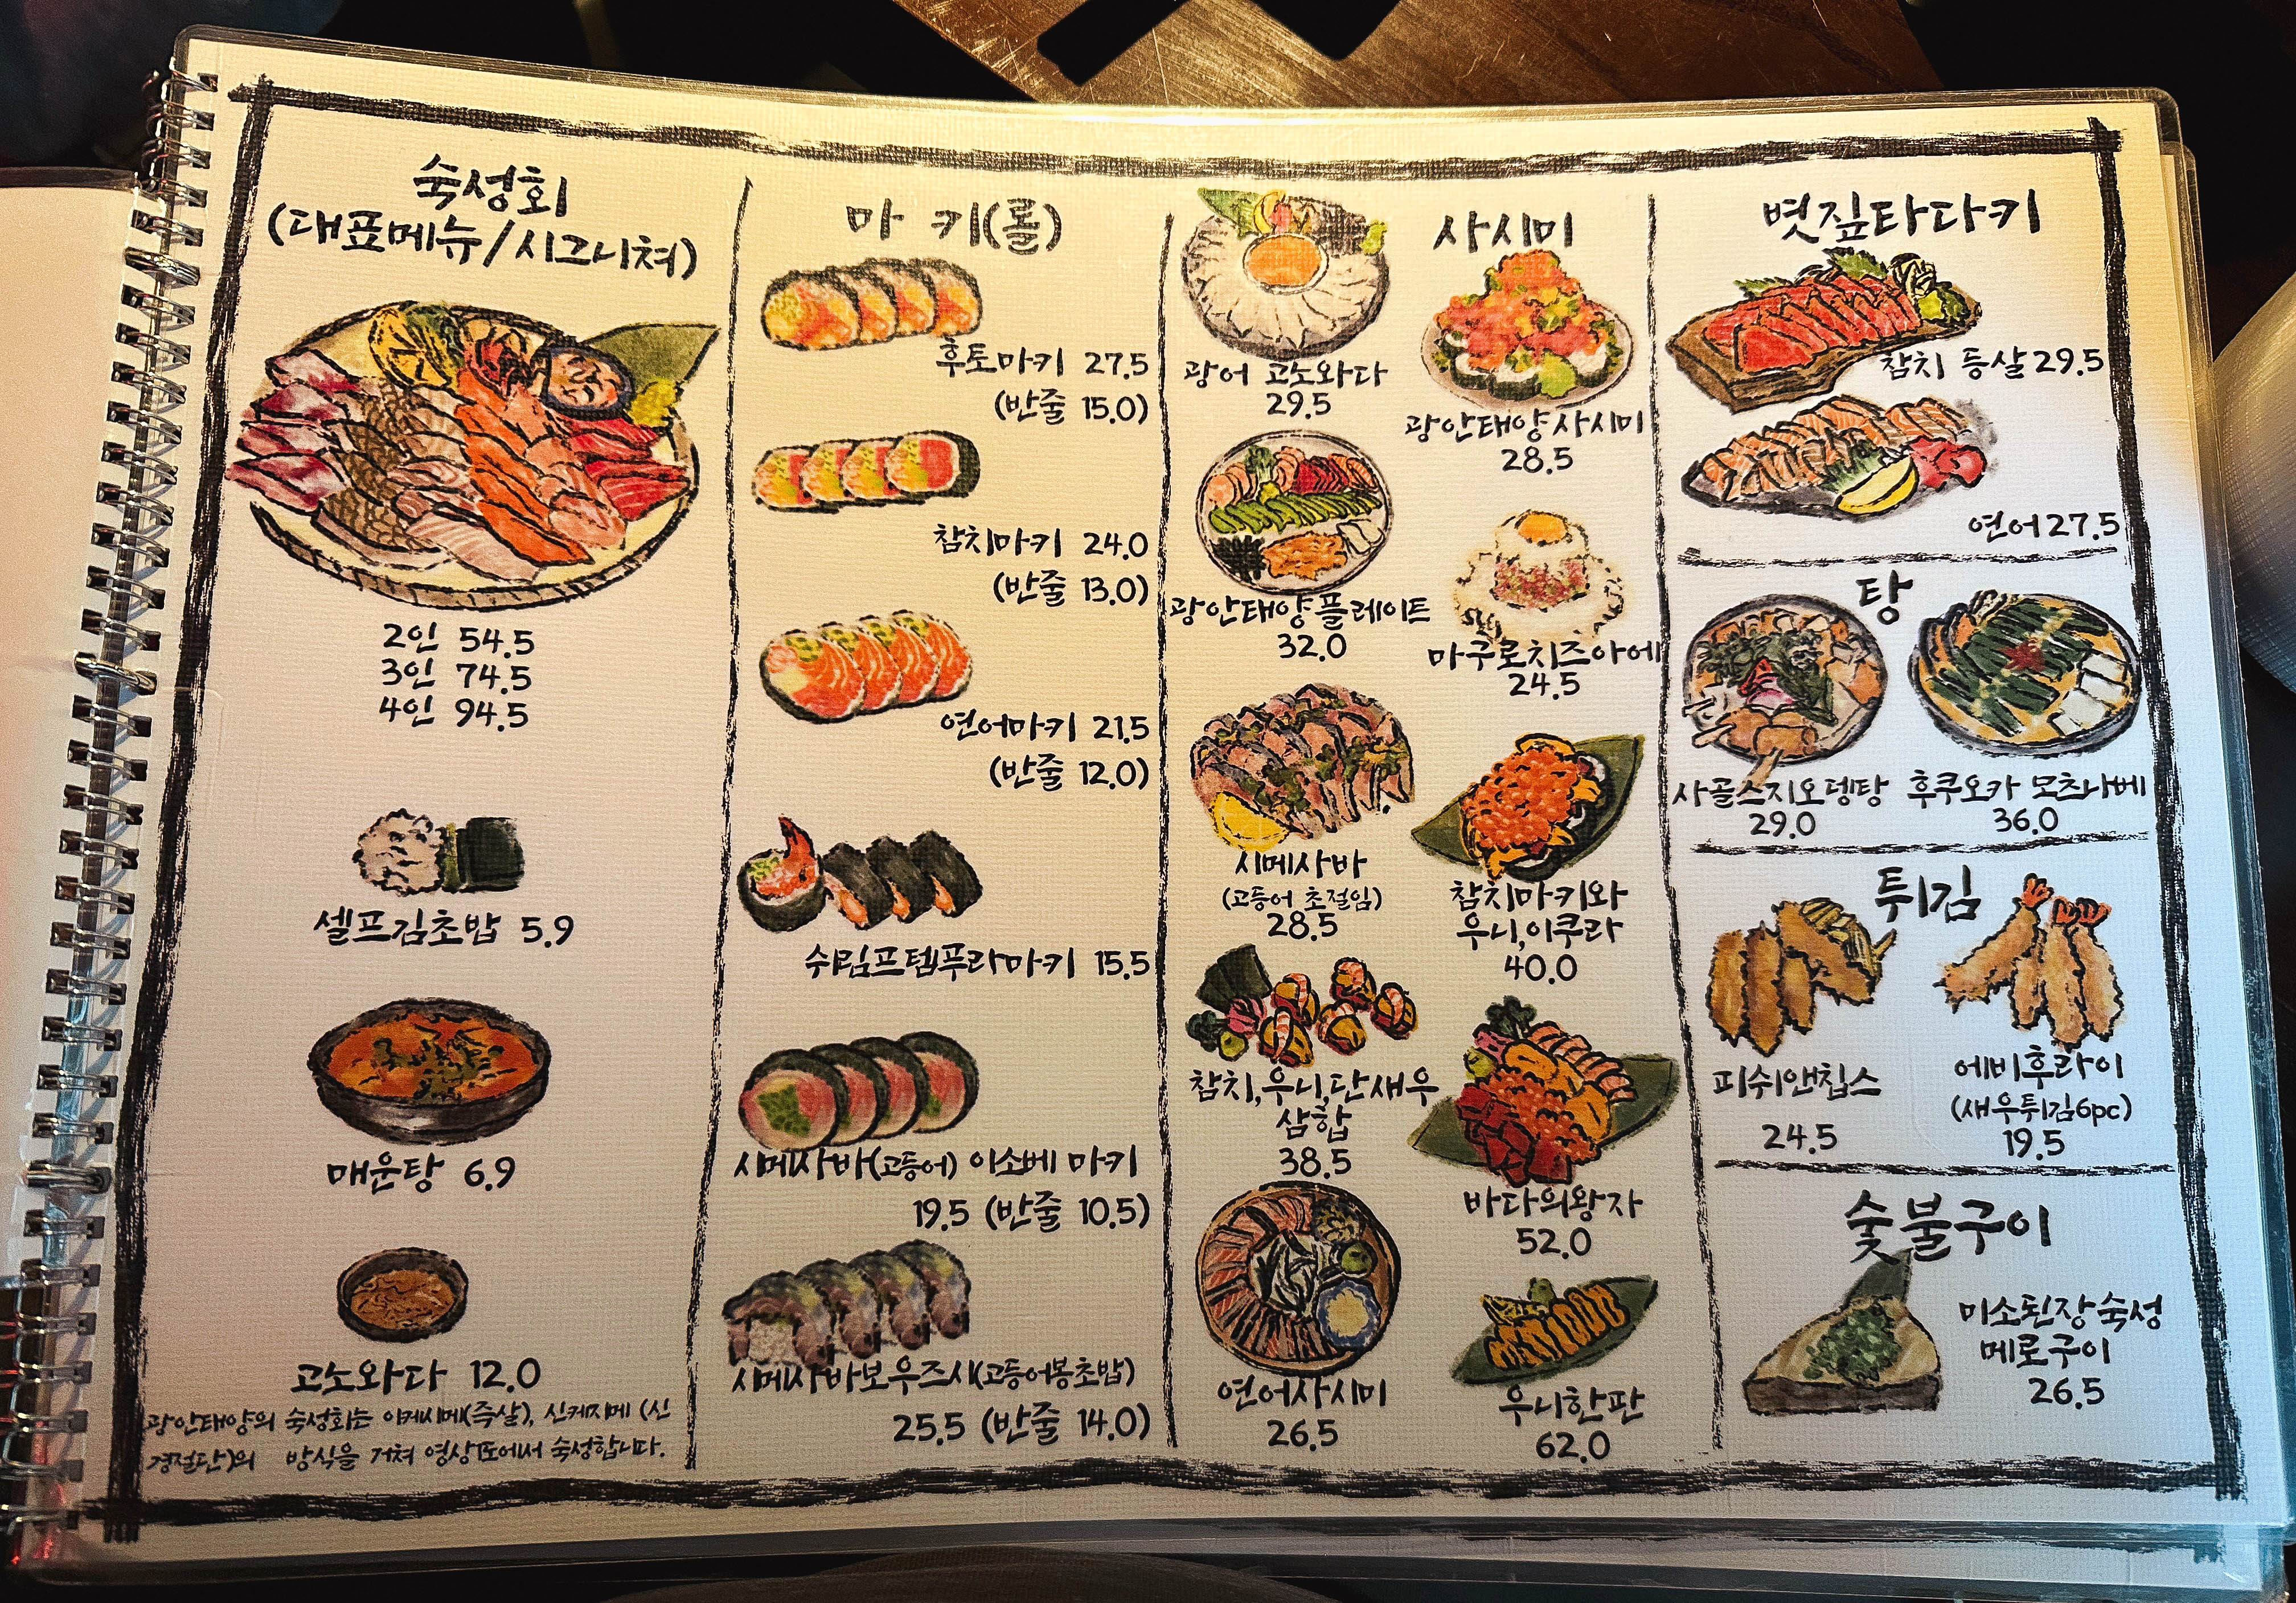 숙성회
(대표메뉴/시그니쳐)
2인 54.5
3인 74.5
4인 94.5
셀프김초밥 5.9
매운탕 6.9
고노와다 12.0
광안태양의 숙성회는 이케시메(즉살), 신케지메 (신
경절단)의 방식을 거쳐 영상표에서 숙성합니다.
마 키(롤)
후토마키 27.5
(반줄 15.0)
참치마키 24.0
(반줄 13.0)
연어마키 21.5
(반줄 12.0)
쉬림프템푸라마키 15.5
시메사바(고등어) 이소베 마키
19.5 (반줄 10.5)
시메사바보우즈시(고등어봉초밥)
25.5 (반줄 14.0)
사시미
광어 고노와다
29.5
광안태양사시미
28.5
광안태양플레이트
32.0
마구로치즈아에
24.5
시메사바
(고등어 초절임)
28.5
참치마키와
우니,이쿠라
40.0
참치,우니,단새우
삼합
38.5
바다의왕자
52.0
연어사시미
26.5
우니한판
62.0
볏짚타다키
참치 등살 29.5
연어 27.5
탕
사골스지오뎅탕
29.0
후쿠오카 모츠나베
36.0
튀김
피쉬앤칩스
24.5
에비후라이
(새우튀김6pc)
19.5
숯불구이
미소된장숙성
메로구이
26.5